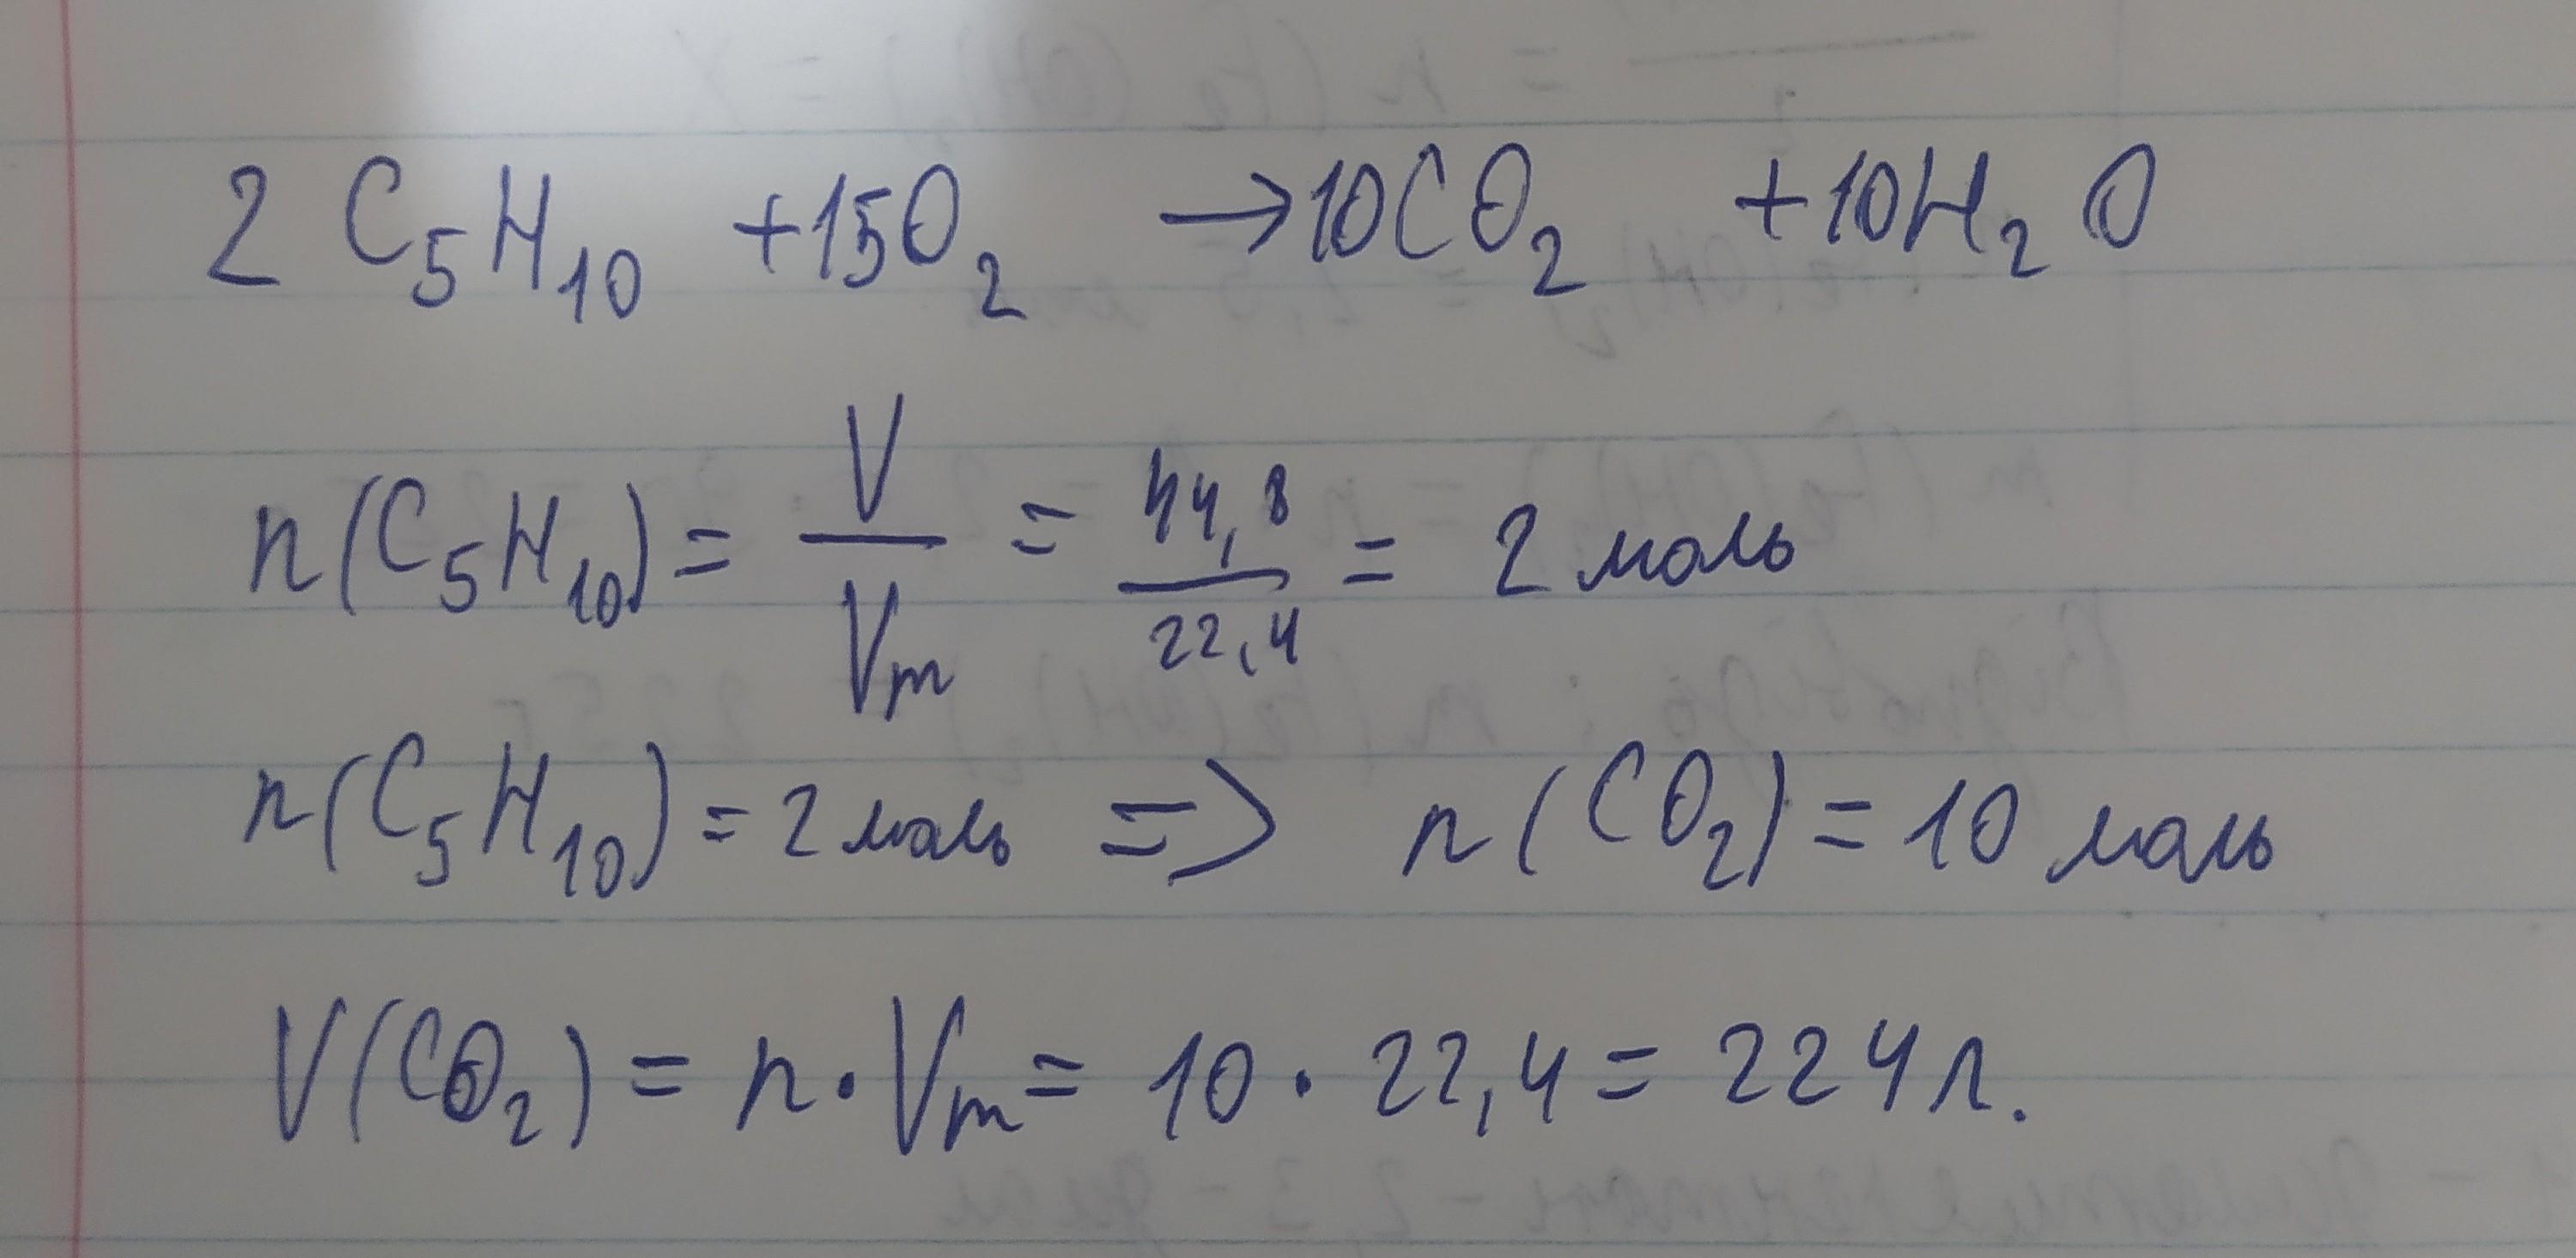 2 C₅H₁₀ +15O₂ →10CO₂ +10H₂O
n(C₅H₁₀)= V/Vm = 44,8/22,4 = 2 моль
n(C₅H₁₀)=2 моль => n(CO₂)=10 моль
V(CO₂)= n·Vm= 10·22,4= 224 л.